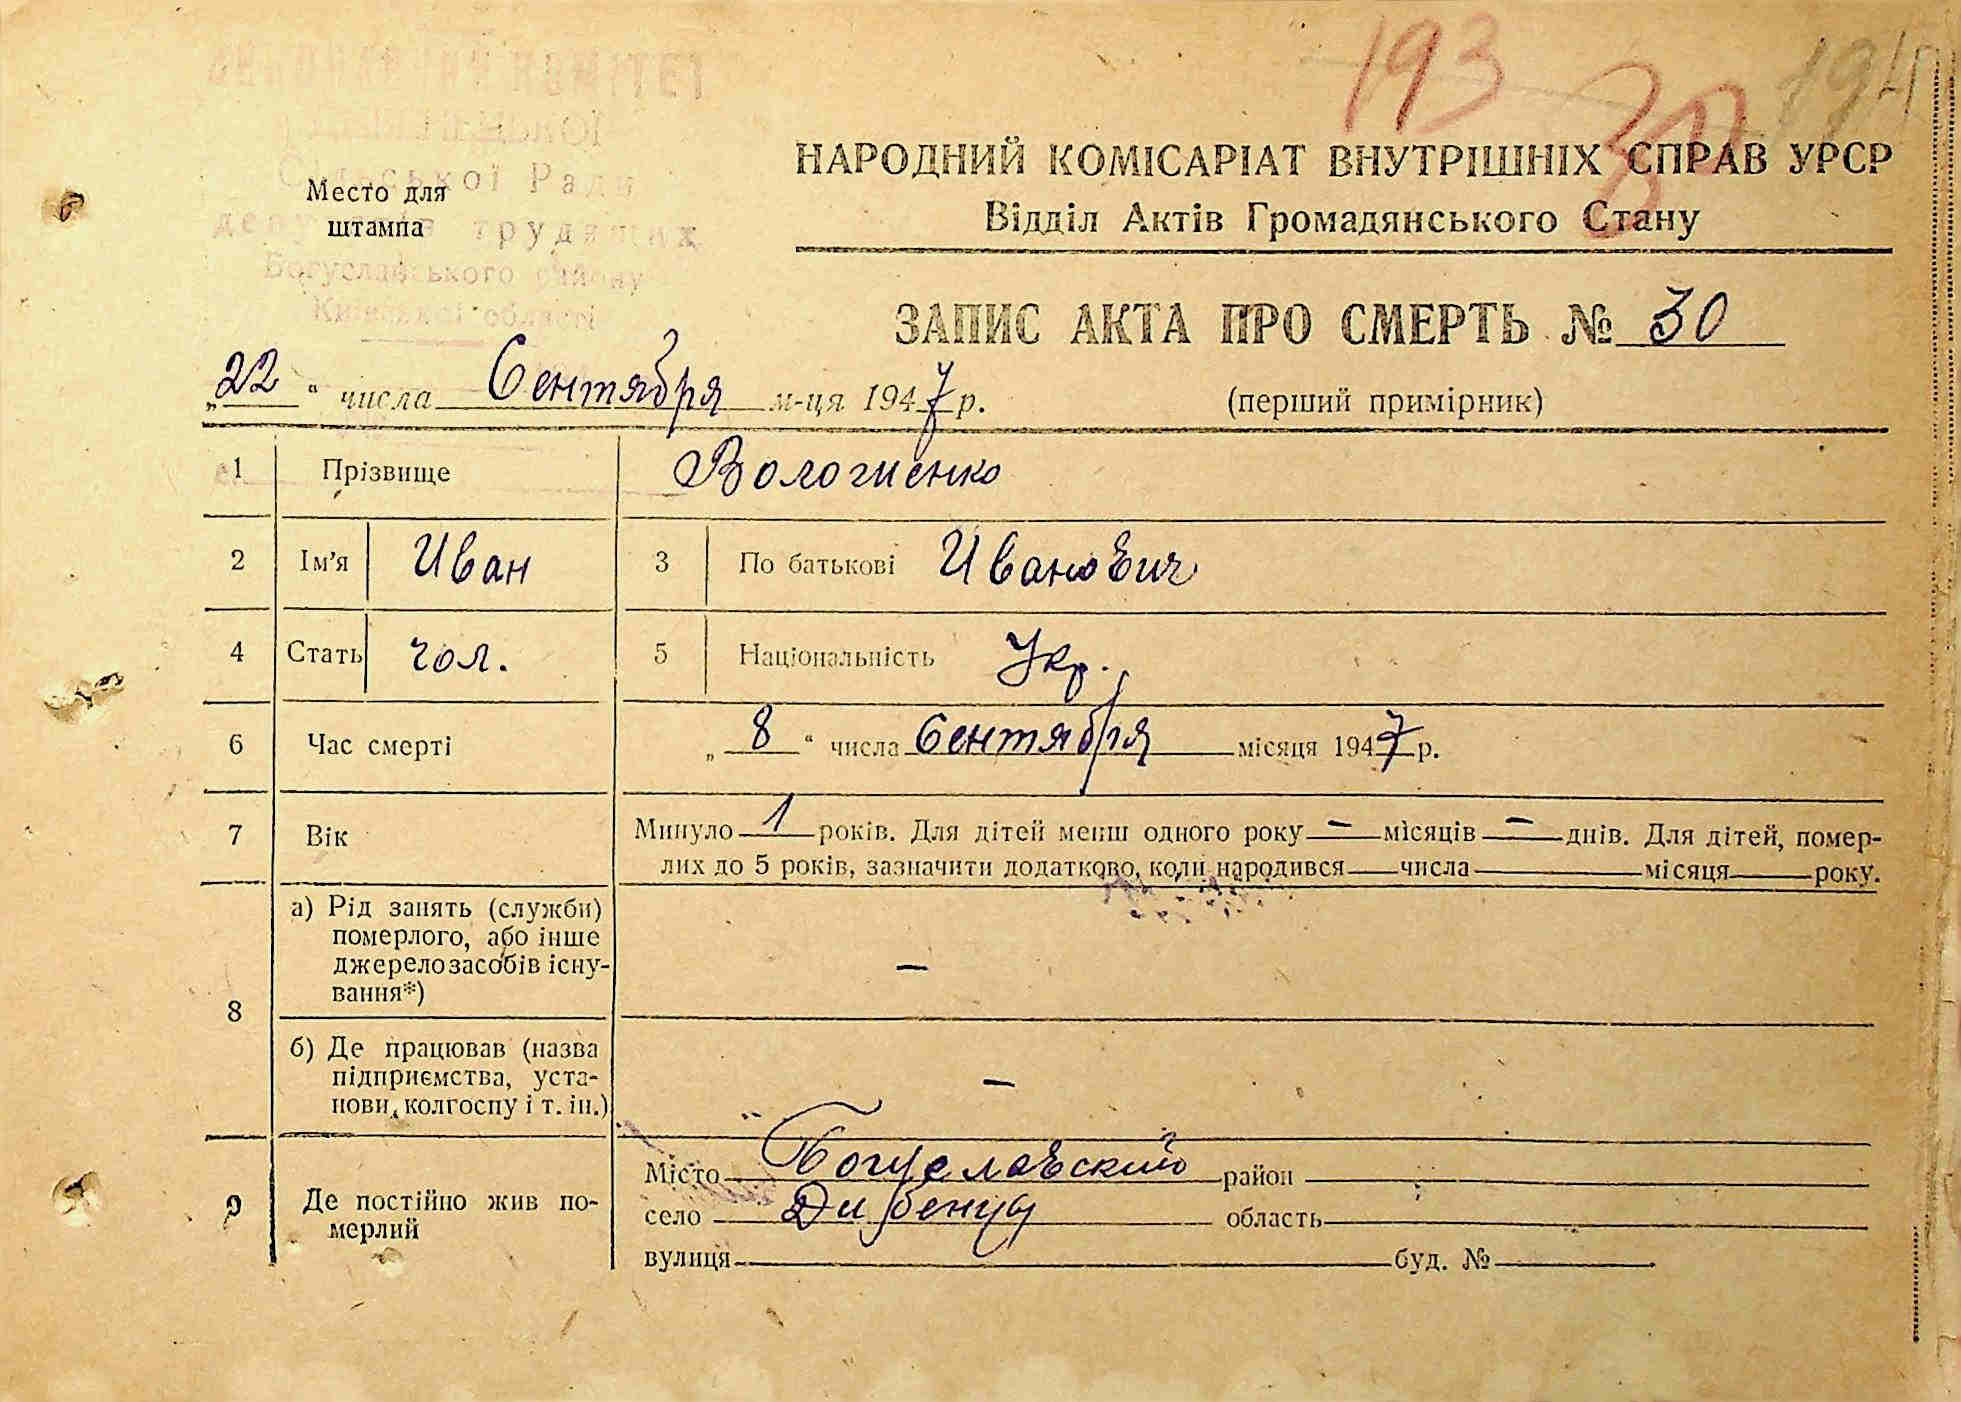 193
30
194
Місто для
штампа
Сільської Ради
депутатів трудящих
Богуславського району
Київської області
НАРОДНИЙ КОМІСАРІАТ ВНУТРІШНІХ СПРАВ УРСР
Відділ Актів Громадянського Стану
ЗАПИС АКТА ПРО СМЕРТЬ № 30
„22“ числа Сентября м-ця 1947 р.
(перший примірник)
1 Прізвище Вологиенко
2 Ім'я Иван 3 По батькові Иванович
4 Стать чол. 5 Національність Укр.
6 Час смерті „8“ числа Сентября місяця 1947 р.
7 Вік Минуло 1 років. Для дітей менш одного року — місяців — днів. Для дітей, помер-
лих до 5 років, зазначити додатково, коли народився числа місяця року.
8 а) Рід занять (служби)
померлого, або інше
джерело засобів існу-
вання*) —
б) Де працював (назва
підприємства, уста-
нови, колгоспу і т. ін.) —
9 Де постійно жив по-
мерлий
Місто Богуславский район
село Дибенцы область
вулиця буд. №